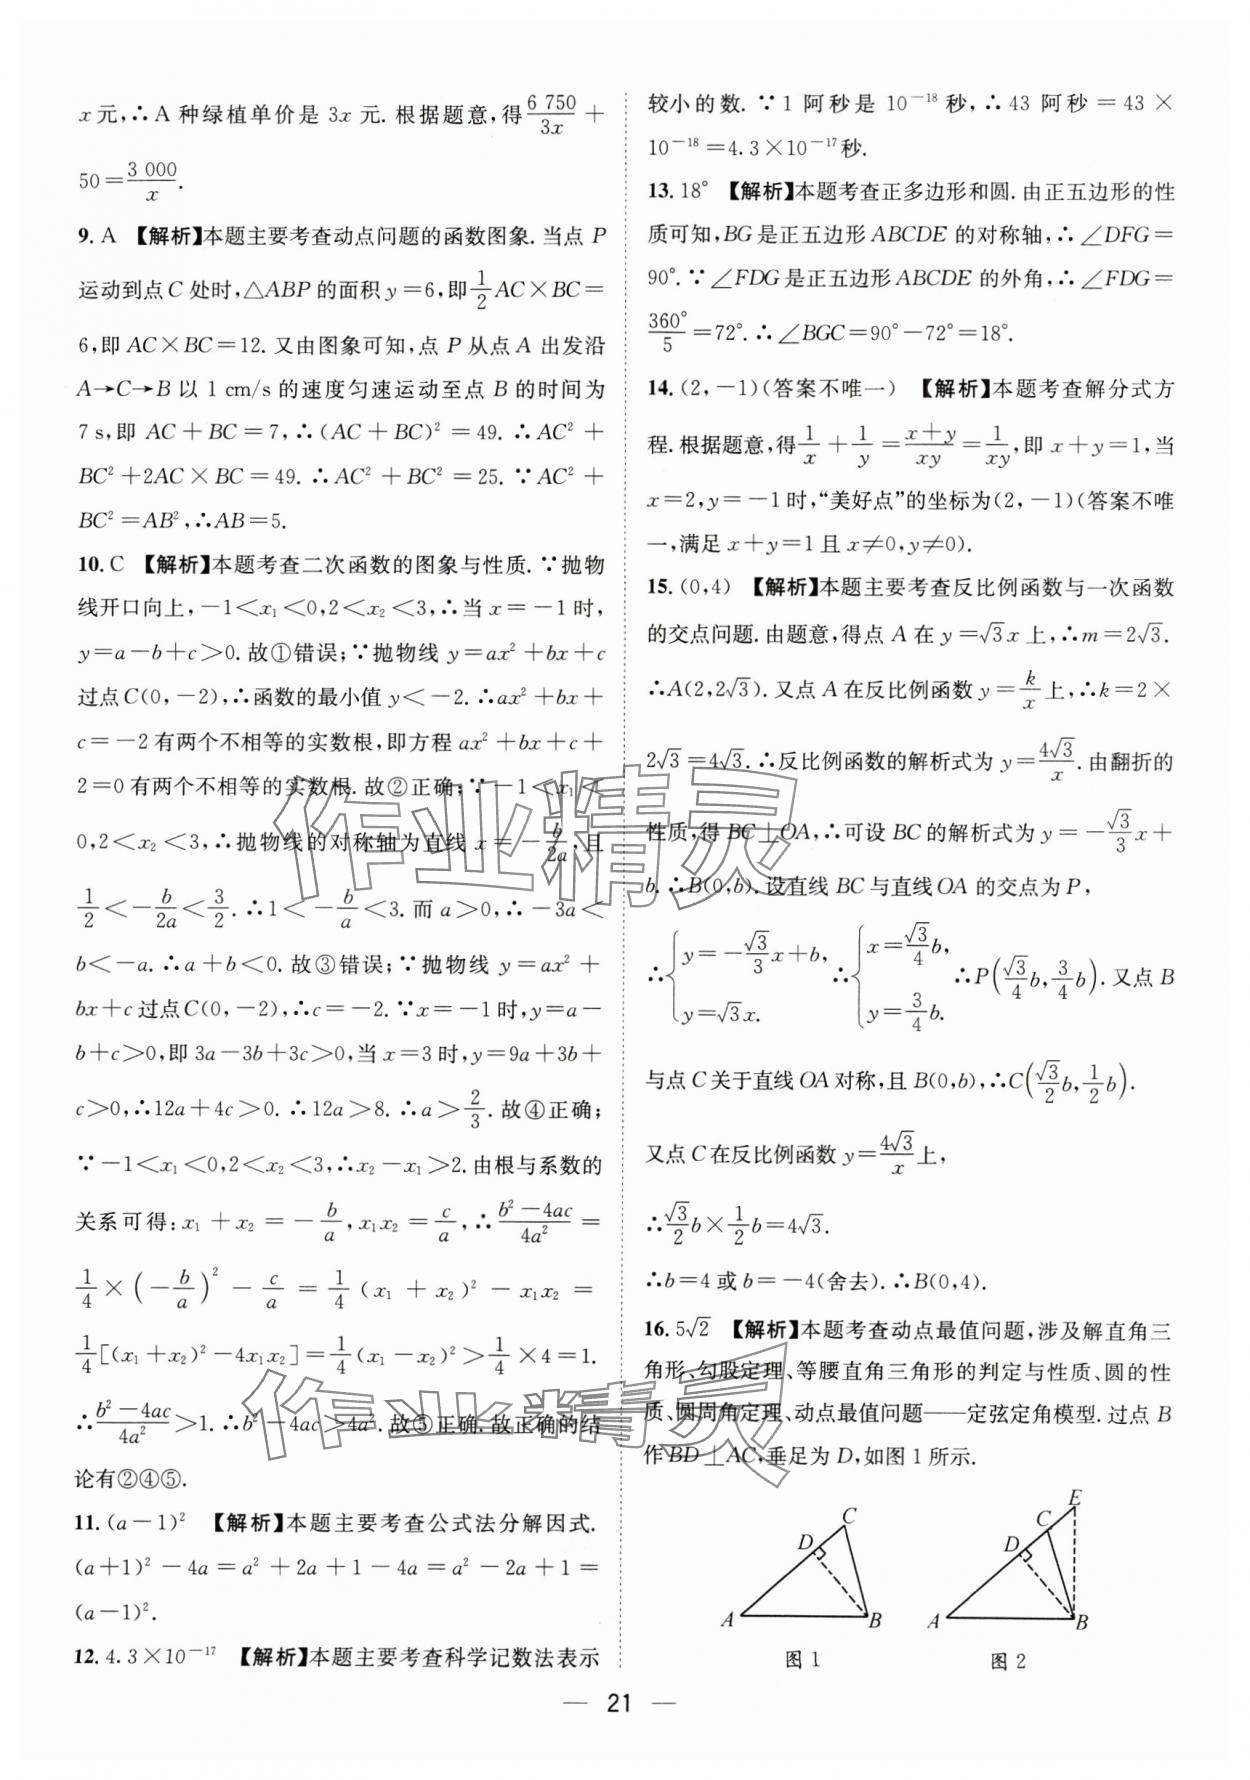 x元,∴A 种绿植单价是 3x 元. 根据题意,得6 750/3x +
50=3 000/x.
9. A 【解析】本题主要考查动点问题的函数图象. 当点 P
运动到点 C 处时,△ABP 的面积 y=6,即1/2 AC×BC=
6,即 AC×BC=12. 又由图象可知,点 P 从点 A 出发沿
A→C→B 以 1 cm/s 的速度匀速运动至点 B 的时间为
7 s,即 AC+BC=7,∴(AC+BC)²=49. ∴AC²+
BC²+2AC×BC=49. ∴AC²+BC²=25. ∵AC²+
BC²=AB²,∴AB=5.
10. C 【解析】本题考查二次函数的图象与性质. ∵抛物
线开口向上,-1<x₁<0,2<x₂<3,∴当 x=-1 时,
y=a-b+c>0. 故①错误;∵抛物线 y=ax²+bx+c
过点C(0,-2),∴函数的最小值 y<-2. ∴ax²+bx+
c=-2 有两个不相等的实数根,即方程 ax²+bx+c+
2=0 有两个不相等的实数根. 故②正确;∵-1<x₁<
0,2<x₂<3,∴抛物线的对称轴为直线 x=-b/2a,且
1/2<-b/2a<3/2. ∴1<-b/a<3. 而 a>0,∴-3a<
b<-a. ∴a+b<0. 故③错误;∵抛物线 y=ax²+
bx+c 过点C(0,-2),∴c=-2. ∵x=-1 时,y=a-
b+c>0,即 3a-3b+3c>0,当 x=3 时,y=9a+3b+
c>0,∴12a+4c>0. ∴12a>8. ∴a>2/3. 故④正确;
∵-1<x₁<0,2<x₂<3,∴x₂-x₁>2. 由根与系数的
关系可得:x₁+x₂=-b/a,x₁x₂=c/a,∴(b²-4ac)/4a²=
1/4×(-b/a)²-c/a=1/4(x₁+x₂)²-x₁x₂=
1/4[(x₁+x₂)²-4x₁x₂]=1/4(x₁-x₂)²>1/4×4=1.
∴(b²-4ac)/4a²>1. ∴b²-4ac>4a². 故⑤正确. 故正确的结
论有②④⑤.
11. (a-1)² 【解析】本题主要考查公式法分解因式.
(a+1)²-4a=a²+2a+1-4a=a²-2a+1=
(a-1)².
12. 4.3×10⁻¹⁷ 【解析】本题主要考查科学记数法表示
较小的数. ∵1 阿秒是 10⁻¹⁸ 秒,∴43 阿秒=43×
10⁻¹⁸=4.3×10⁻¹⁷秒.
13. 18° 【解析】本题考查正多边形和圆. 由正五边形的性
质可知,BG 是正五边形 ABCDE 的对称轴,∴∠DFG=
90°. ∵∠FDG 是正五边形 ABCDE 的外角,∴∠FDG=
360°/5=72°. ∴∠BGC=90°-72°=18°.
14. (2,-1)(答案不唯一) 【解析】本题考查解分式方
程. 根据题意,得1/x+1/y=(x+y)/xy=1/xy,即 x+y=1,当
x=2,y=-1时,“美好点”的坐标为(2,-1)(答案不唯
一,满足 x+y=1 且 x≠0,y≠0).
15. (0,4) 【解析】本题主要考查反比例函数与一次函数
的交点问题. 由题意,得点 A 在 y=√3x 上,∴m=2√3.
∴A(2,2√3). 又点 A 在反比例函数 y=k/x上,∴k=2×
2√3=4√3. ∴反比例函数的解析式为 y=4√3/x. 由翻折的
性质,得 BC⊥OA,∴可设 BC 的解析式为 y=-√3/3 x+
b. ∴B(0,b). 设直线 BC 与直线 OA 的交点为 P,
∴{y=-√3/3 x+b, y=√3x. ∴{x=√3/4 b, y=3/4 b. ∴P(√3/4 b,3/4 b). 又点 B
与点 C 关于直线 OA 对称,且 B(0,b),∴C(√3/2 b,1/2 b).
又点 C 在反比例函数 y=4√3/x上,
∴√3/2 b×1/2 b=4√3.
∴b=4 或 b=-4(舍去). ∴B(0,4).
16. 5√2 【解析】本题考查动点最值问题,涉及解直角三
角形、勾股定理、等腰直角三角形的判定与性质、圆的性
质、圆周角定理、动点最值问题——定弦定角模型. 过点 B
作 BD⊥AC,垂足为 D,如图 1 所示.
C
D
A
B
图 1
E
C
D
A
B
图 2
— 21 —
作业精灵
作业精灵